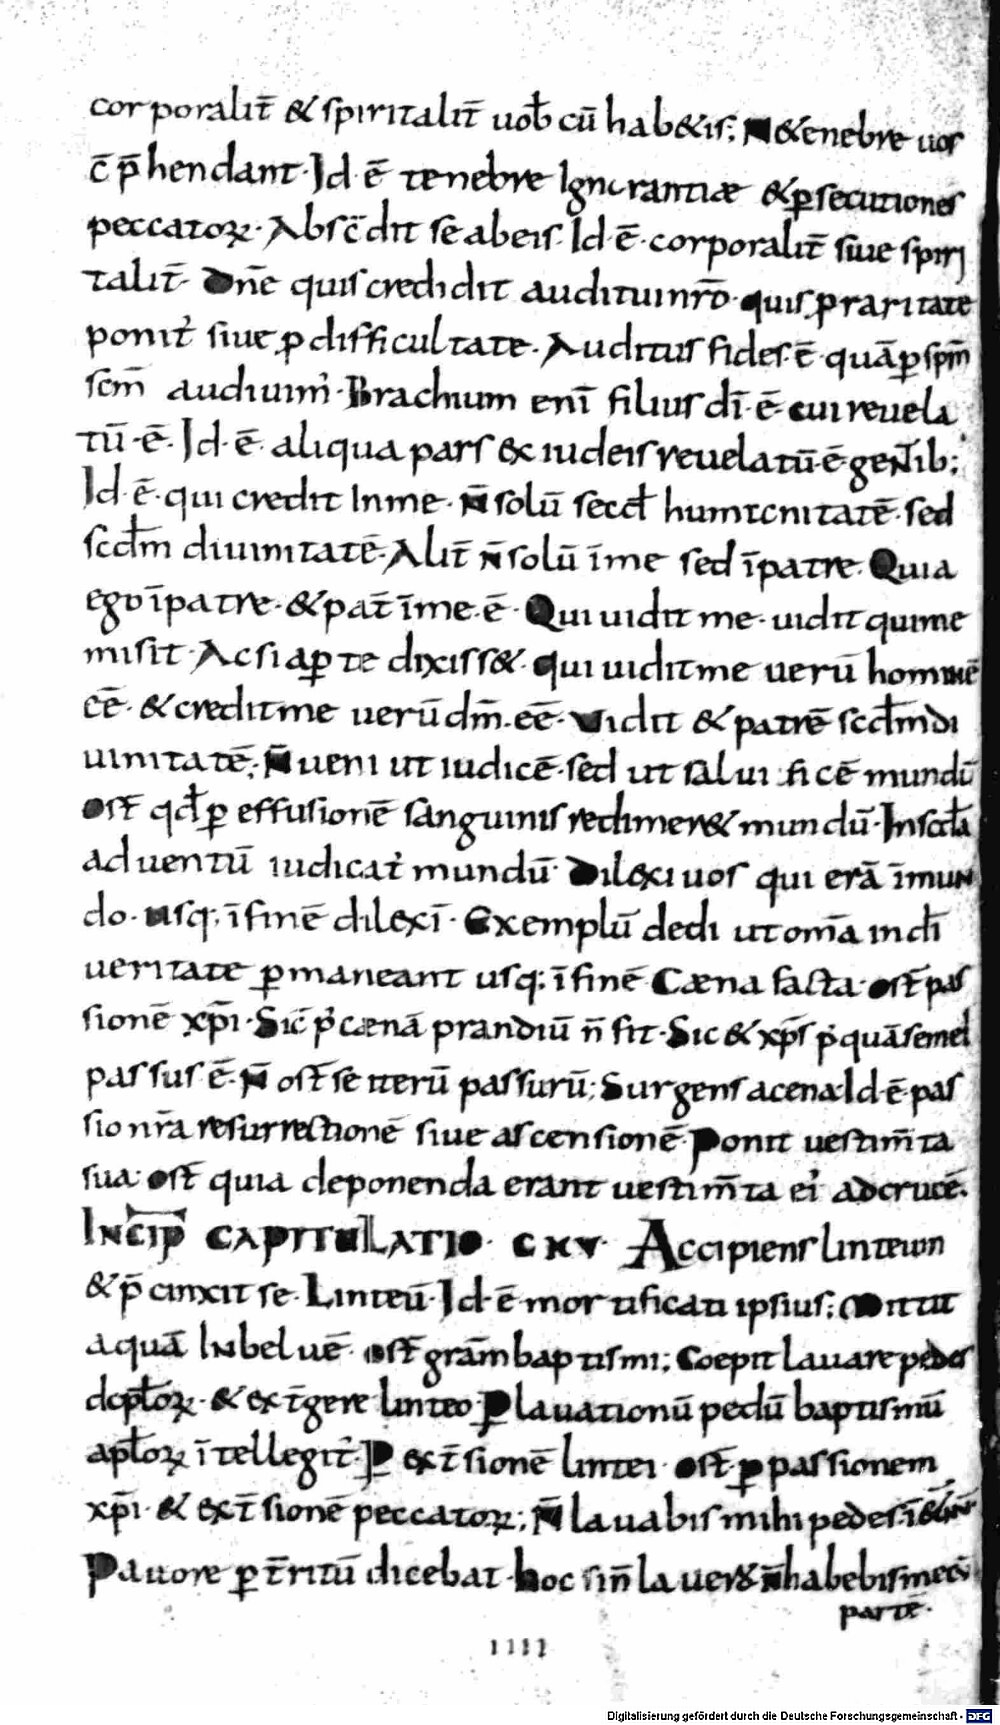 corporalit̄ & spiritalit̄ uob̄ cū hab&is; N&enebre uos
c̄p̄hendant· Id·ē tenebre Ignorantiæ &ꝑsecutiones
peccatoꝝ· Absc̄dit se abeis· Id·ē· corporalit̄ siue spiri
talit̄· Dn̄e quis credidit audituinr̄o· quis ꝑraritate
ponit᾽ siue ꝑdifficultate· Auditus fides·ē quāꝑsp̄m
sc̄m audiuim᾽· Brachium enī filius dī·ē· cui reuela
tū·ē· Id·ē aliqua pars ex iudeis reuelatū·ē gentib;
Id·ē· qui credit Inme· n̄ solū secd̄ humanitatē· sed
scd̄m diuinitatē· Alit̄ n̄ solū īme sed īpatre· Quia
ego īpatre· & pat̄ īme·ē· Qui uidit me· uidit quime
misit· Acsi aꝑte dixiss&· qui uiditme uerū hominē
eē· & creditme uerū dm̄·eē· Vidit & patrē scd̄mdi
uinitatē; N̄ ueni ut iudicē· sed ut salui ficē mundū
ost̄ qd̄ ꝑ effusionē sanguinis redimer& mundū· Inscd̄a
aduentū iudicat᾽ mundū· Dilexi uos qui erā īmun
do· usq; īfinē dilexī· Exemplū dedi ut om̄a indī
ueritate ꝑmaneant usq; īfinē Cæna facta· ost̄ pas
sionē xp̄i· Sic̄ p᾽ cænā prandiū n̄ fit· Sic & xp̄s p᾽quā semel
passus ē· N̄ ost̄ se iterū passurū; Surgens acena· Id·ē· pas
sionr̄a resurrectionē siue ascensionē· Ponit uestim̄ta
sua· ost̄ quia deponenda erant uestim̄ta ei᾽ adcrucē·
INCIP̄ CAPITULATIO· CXV· Accipiens linteum
& p̄cinxit se· Linteū· Id·ē mortificati ipsius; Mittit
aquā Inbeluē· ost̄ grām baptismi; Coepit lauare pedes
dcpl̄oꝝ· & ext̄gere linteo· P lauationū pedū baptismū
apl̄oꝝ ītellegit᾽· P ext̄sionē lintei· ost̄ ꝑ passionem
xp̄i· & ext̄sionē peccatoꝝ; N̄ lauabis mihi pedes
Pauore ꝑt̄ritū dicebat· hoc sin̄ lauero n̄ habebis mecū
partē·
IIII
Digitalisierung gefördert durch die Deutsche Forschungsgemeinschaft - DFG